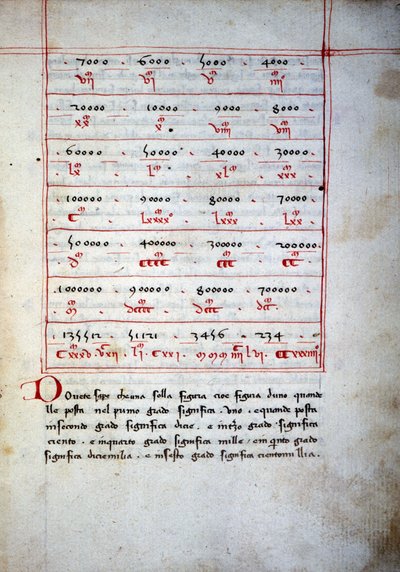 . 7000 . 6000 . 5000 . 4000 .
vii^m vi^m v^m iiii^m
20000 . 10000 . 9000 . 8000 .
xx^m x^m viiii^m viii^m
. 60000 . 50000 . 40000 . 30000 .
lx^m l^m xl^m xxx^m
100000 . 90000 . 80000 . 70000
C^m lxxxx^m lxxx^m lxx^m
500000 . 400000 . 300000 . 200000 .
d^m CCCC^m CCC^m CC^m
1000000 . 900000 . 800000 . 700000
dcccc^m dccc^m dcc^m
135512 . 51121 . 3456 . 234 .
lvi . CCxxxiiii
Dovete sape che una solla figura cioe figura duno quande
lle posta nel primo grado significa . uno . e quande posta
insecondo grado significa dicie . e interzo grado . significa
ciento . e inquarto grado significa mille / em quinto grado
significa diciemilia . e insesto grado significa cientomillia .